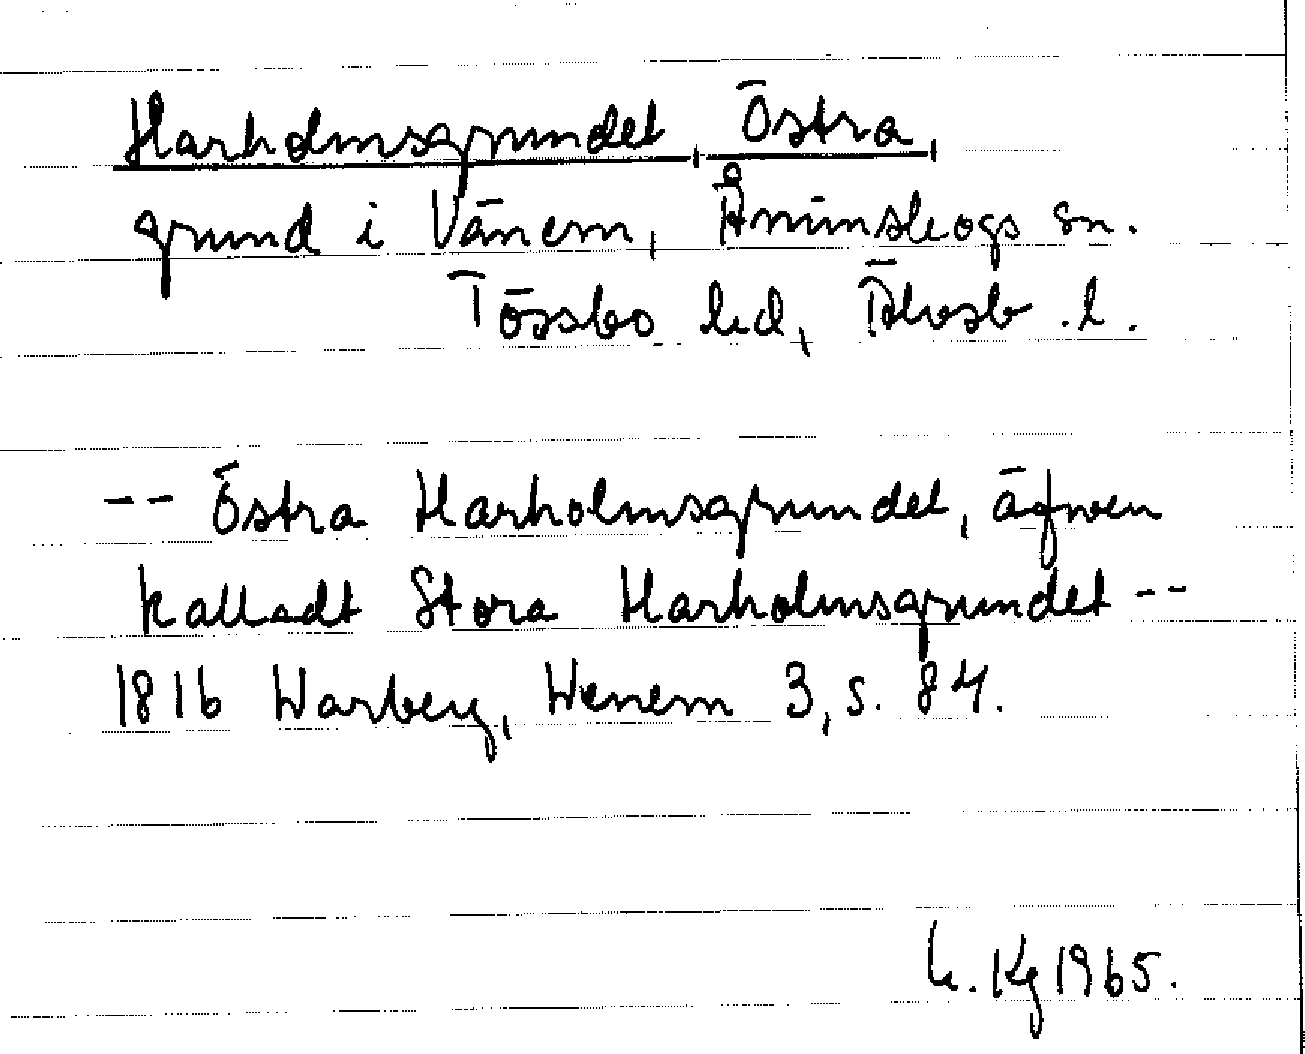 Harholmsgrundet, Östra,
grund i Vänern, Åminskogs sn.
Tössbo hd, Älvsb. l.
-- Östra Harholmsgrundet, äfwen
kalladt Stora Harholmsgrundet --
1816 Warberg, Wenern 3, s. 84.
Kg 1965.